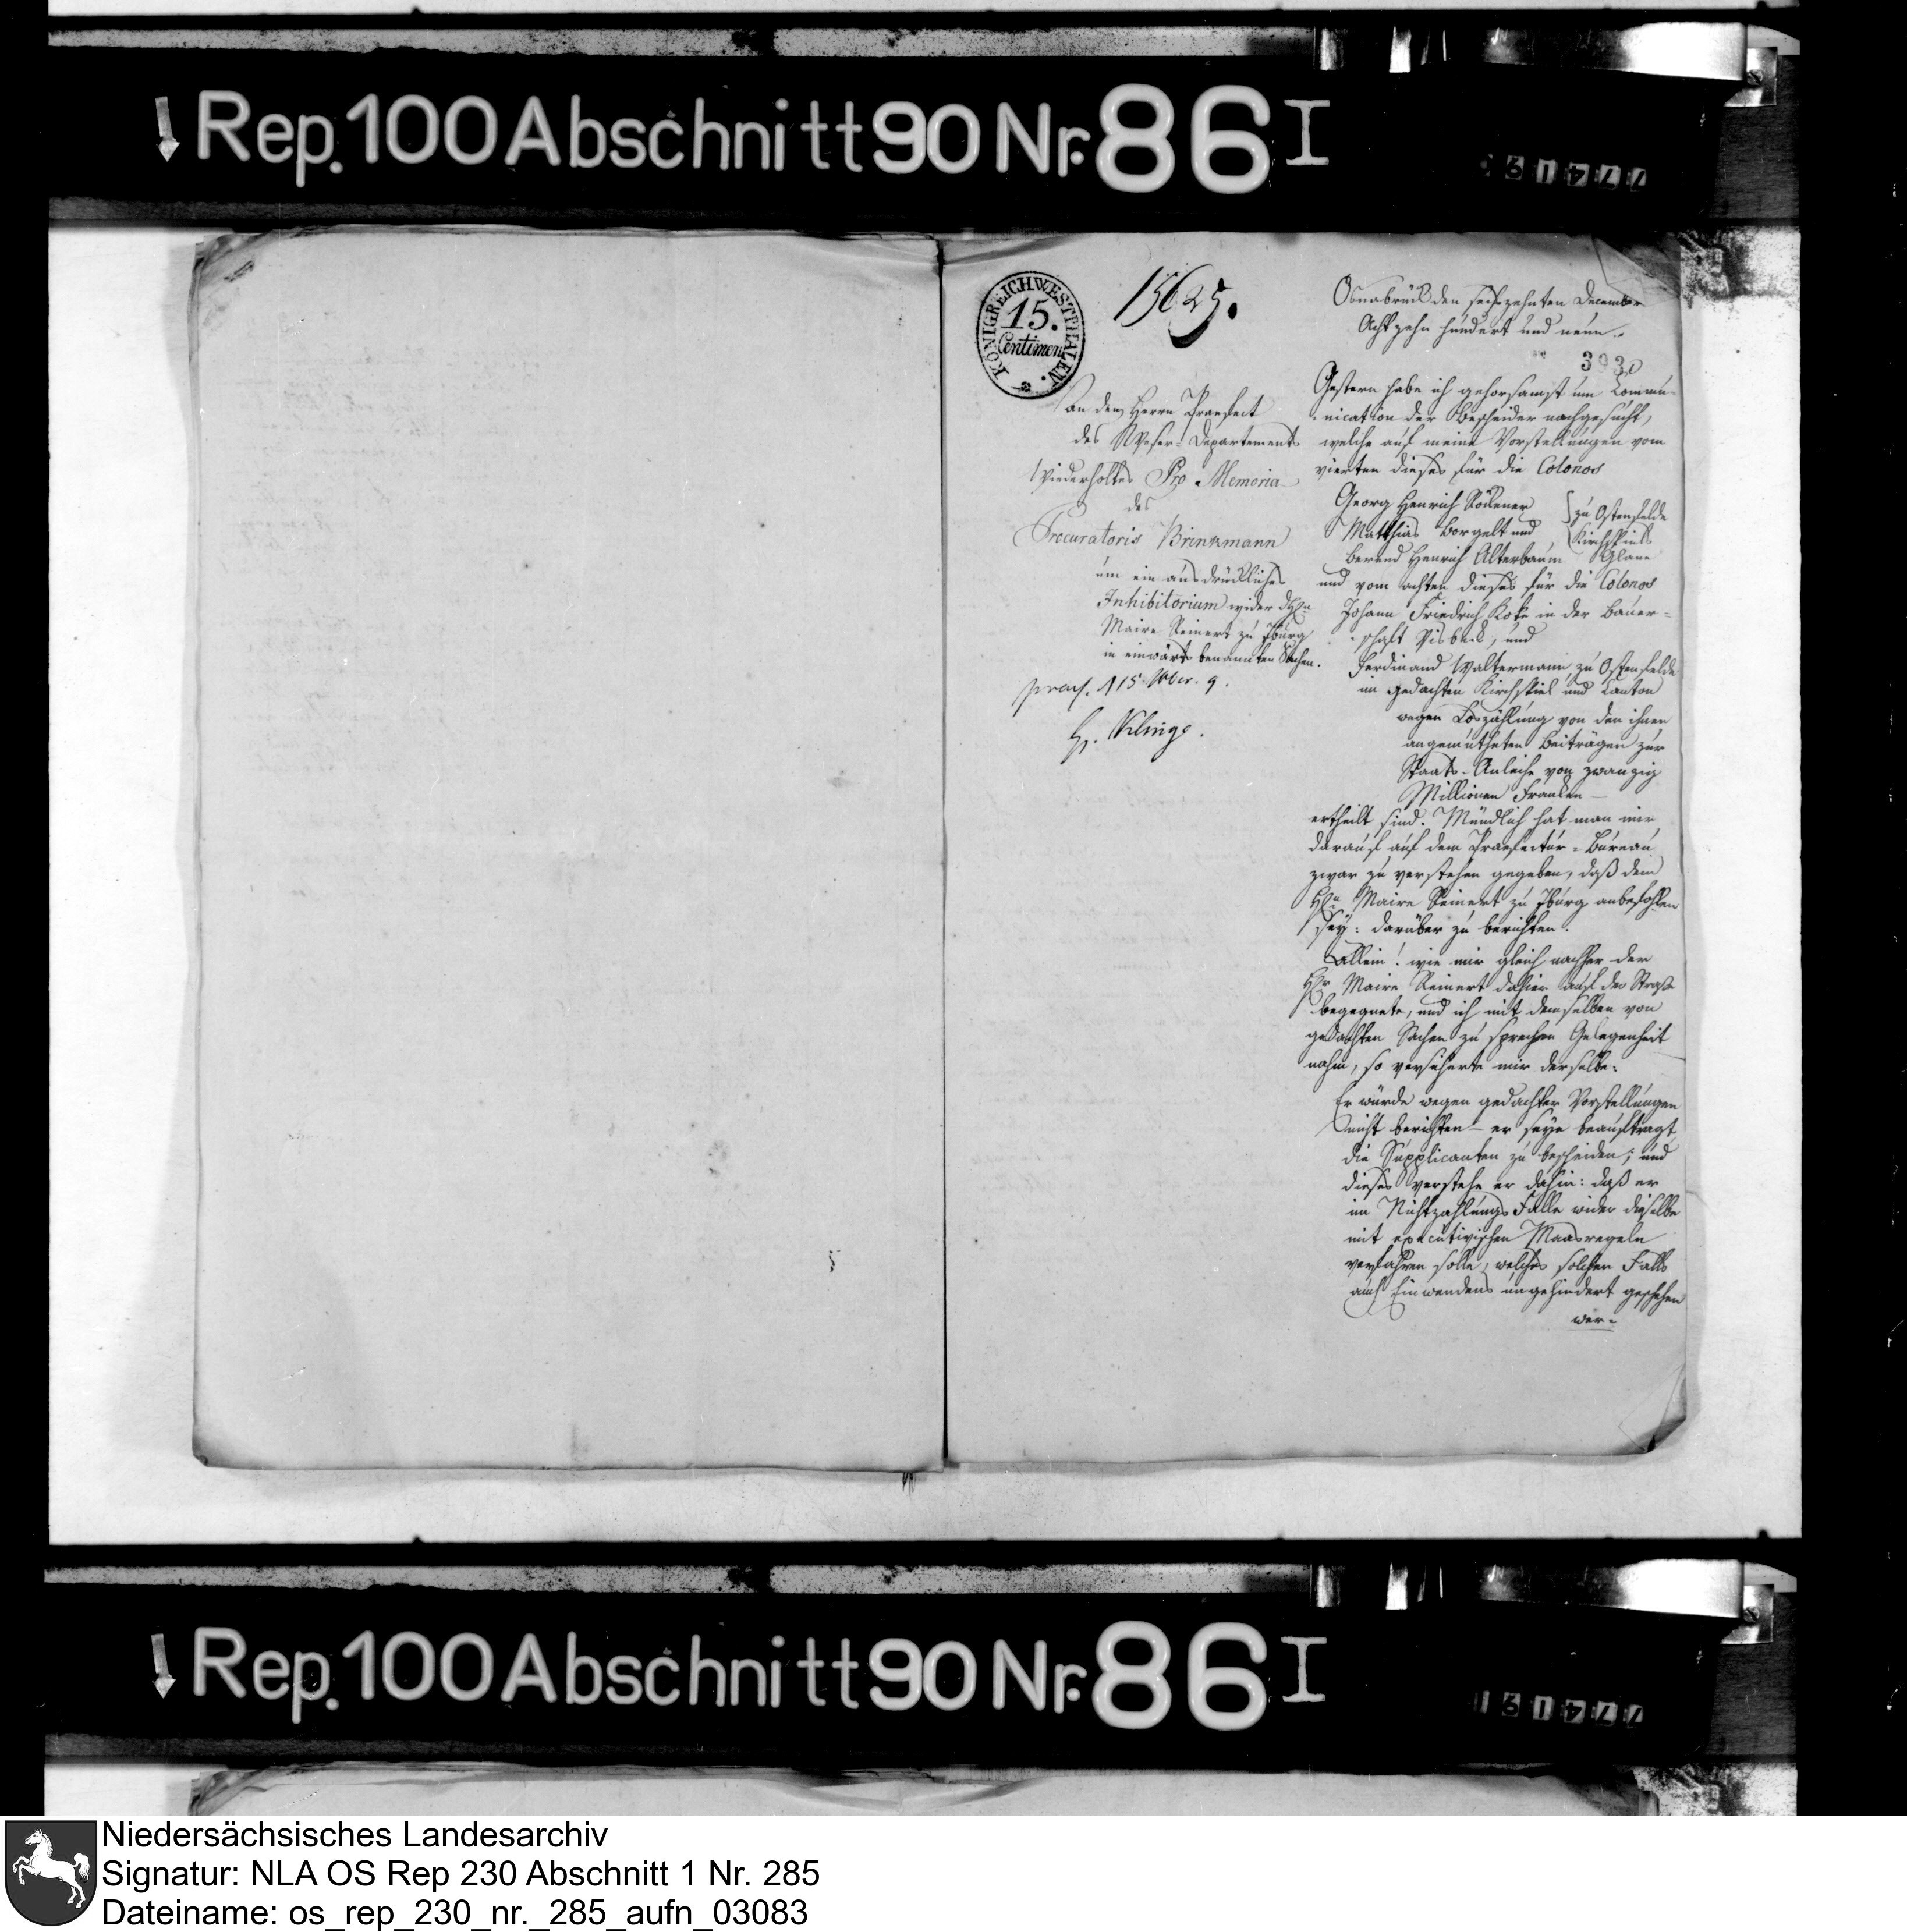 Rep. 100 Abschnitt 90 Nr. 86 I
77419
KÖNIGREICH WESTPHALEN.
15.
Centimen
15625.
An den Herrn Praefect
des Weser-Departements
Wiederholtes Pro Memoria
des
Procuratoris Brinkmann
um ein ausdrückliches
Inhibitorium wider d. Hrn
Maire Reinert zu Iburg
in einwärts benannten Sachen.
praes. 15 Xber. 9.
H. Klinge.
Osnabrück den sechszehnten December
Achtzehn hundert und neun.
Gestern habe ich gehorsamst um Commu-
nication der Bescheider nachgesucht,
welche auf meine Vorstellungen vom
vierten dieses für die Colonos
Georg Henrich
Matthias Borgelt und
Berend Henrich Alterbaum
zu Ostenfelde
Kirchspiels
Glane
und vom achten dieses für die Colonos
Johann Friedrich Koke in der Bauer-
schaft Visbeck, und
Ferdinand Waltermann zu Ostenfelde
im gedachten Kirchspiel und Canton
wegen Loszählung von den ihnen
angemutheten Beiträgen zur
Staats-Anleihe von zwanzig
Millionen Franken
ertheilt sind. Mündlich hat man mir
darauf auf dem Praefectur-Bureau
zwar zu verstehen gegeben, daß dem
Hrn Maire Reinert zu Iburg anbefohlen
sey: darüber zu berichten.
Allein! wie mir gleich nachher der
Hr Maire Reinert dahier auf der Straße
begegnete, und ich mit demselben von
gedachten Sachen zu sprechen Gelegenheit
nahm, so versicherte mir derselbe:
Er würde wegen gedachter Vorstellungen
nicht berichten – er seye beauftragt,
die Supplicanten zu bescheiden; und
dieses verstehe er dahin: daß er
im Nichtzahlungs Falle wider dieselbe
mit executivischen Maasregeln
verfahren solle, welches solchen Falls
auch Einwendens ungehindert geschehen
wer-
Rep. 100 Abschnitt 90 Nr. 86 I
77419
Niedersächsisches Landesarchiv
Signatur: NLA OS Rep 230 Abschnitt 1 Nr. 285
Dateiname: os_rep_230_nr._285_aufn_03083